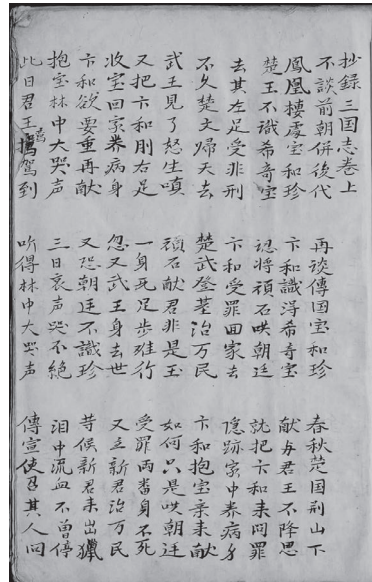 抄録三国志卷上
不談前朝併後代 再谈傳国宝和珍 春秋楚国荆山下
鳳凰棲處宝和珍 卞和識浔希奇宝 献与君王不降恩
楚王不識希奇宝 認将頑石哄朝廷 就把卞和来问罪
去其左足受非刑 卞和受罪回家去 隐跡家中养病身
不久楚文帰天去 楚武登基治万民 卞和抱宝亲来献
武王見了怒生嗔 頑石献君非是玉 如何只是哄朝廷
又把卞和刖右足 一身死足步难行 受罪两畨身不死
收宝回家养病身 忽又武王身去世 又立新君治万民
卞和欲要重再献 又恐朝廷不識珍 等候新君来出獵
抱宝林中大哭声 三日哀声哭不絶 泪中流血不曽停
此日君王駕到 听得林中大哭声 傳宣使召其人问